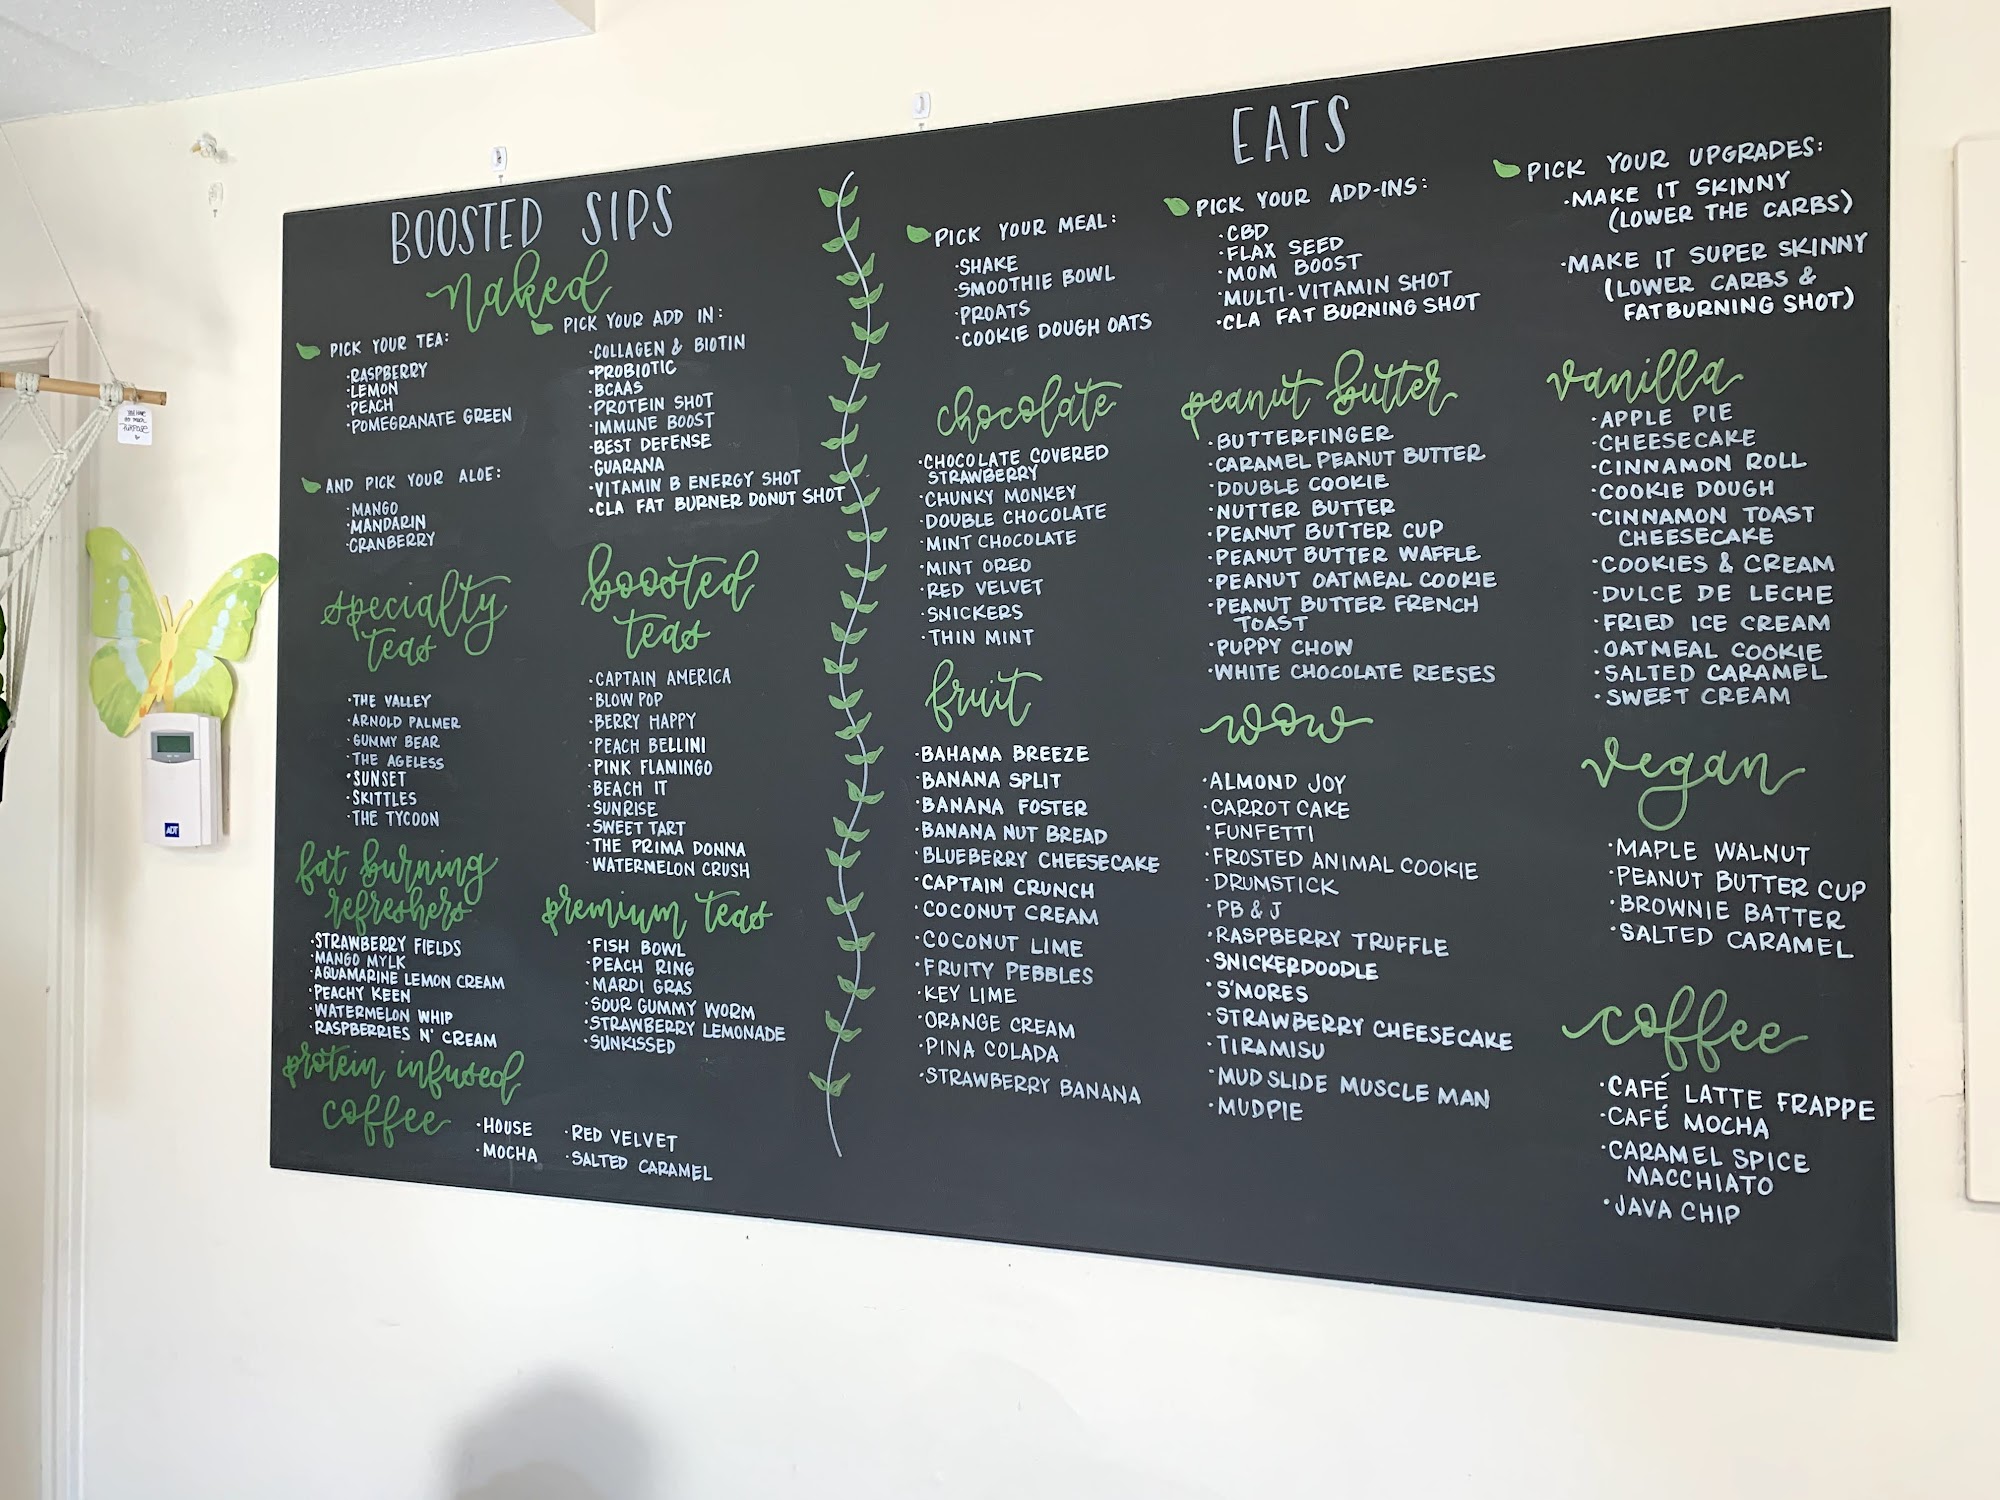 BOOSTED SIPS
naked
PICK YOUR TEA:
·RASPBERRY
·LEMON
·PEACH
·POMEGRANATE GREEN
AND PICK YOUR ALOE:
·MANGO
·MANDARIN
·CRANBERRY
PICK YOUR ADD IN:
·COLLAGEN & BIOTIN
·PROBIOTIC
·BCAAS
·PROTEIN SHOT
·IMMUNE BOOST
·BEST DEFENSE
·GUARANA
·VITAMIN B ENERGY SHOT
·CLA FAT BURNER DONUT SHOT
specialty
teas
·THE VALLEY
·ARNOLD PALMER
·GUMMY BEAR
·THE AGELESS
·SUNSET
·SKITTLES
·THE TYCOON
boosted
teas
·CAPTAIN AMERICA
·BLOW POP
·BERRY HAPPY
·PEACH BELLINI
·PINK FLAMINGO
·BEACH IT
·SUNRISE
·SWEET TART
·THE PRIMA DONNA
·WATERMELON CRUSH
fat burning
refreshers
·STRAWBERRY FIELDS
·MANGO MYLK
·AQUAMARINE LEMON CREAM
·PEACHY KEEN
·WATERMELON WHIP
·RASPBERRIES N' CREAM
premium teas
·FISH BOWL
·PEACH RING
·MARDI GRAS
·SOUR GUMMY WORM
·STRAWBERRY LEMONADE
·SUNKISSED
protein infused
coffee
·HOUSE
·MOCHA
·RED VELVET
·SALTED CARAMEL
EATS
PICK YOUR MEAL:
·SHAKE
·SMOOTHIE BOWL
·PROATS
·COOKIE DOUGH OATS
PICK YOUR ADD-INS:
·CBD
·FLAX SEED
·MOM BOOST
·MULTI-VITAMIN SHOT
·CLA FAT BURNING SHOT
PICK YOUR UPGRADES:
·MAKE IT SKINNY
(LOWER THE CARBS)
·MAKE IT SUPER SKINNY
(LOWER CARBS &
FAT BURNING SHOT)
chocolate
·CHOCOLATE COVERED
STRAWBERRY
·CHUNKY MONKEY
·DOUBLE CHOCOLATE
·MINT CHOCOLATE
·MINT OREO
·RED VELVET
·SNICKERS
·THIN MINT
fruit
·BAHAMA BREEZE
·BANANA SPLIT
·BANANA FOSTER
·BANANA NUT BREAD
·BLUEBERRY CHEESECAKE
·CAPTAIN CRUNCH
·COCONUT CREAM
·COCONUT LIME
·FRUITY PEBBLES
·KEY LIME
·ORANGE CREAM
·PINA COLADA
·STRAWBERRY BANANA
peanut butter
·BUTTERFINGER
·CARAMEL PEANUT BUTTER
·DOUBLE COOKIE
·NUTTER BUTTER
·PEANUT BUTTER CUP
·PEANUT BUTTER WAFFLE
·PEANUT OATMEAL COOKIE
·PEANUT BUTTER FRENCH
TOAST
·PUPPY CHOW
·WHITE CHOCOLATE REESES
wow
·ALMOND JOY
·CARROT CAKE
·FUNFETTI
·FROSTED ANIMAL COOKIE
·DRUMSTICK
·PB & J
·RASPBERRY TRUFFLE
·SNICKERDOODLE
·S'MORES
·STRAWBERRY CHEESECAKE
·TIRAMISU
·MUDSLIDE MUSCLE MAN
·MUDPIE
vanilla
·APPLE PIE
·CHEESECAKE
·CINNAMON ROLL
·COOKIE DOUGH
·CINNAMON TOAST
CHEESECAKE
·COOKIES & CREAM
·DULCE DE LECHE
·FRIED ICE CREAM
·OATMEAL COOKIE
·SALTED CARAMEL
·SWEET CREAM
vegan
·MAPLE WALNUT
·PEANUT BUTTER CUP
·BROWNIE BATTER
·SALTED CARAMEL
coffee
·CAFÉ LATTE FRAPPE
·CAFÉ MOCHA
·CARAMEL SPICE
MACCHIATO
·JAVA CHIP
ADT